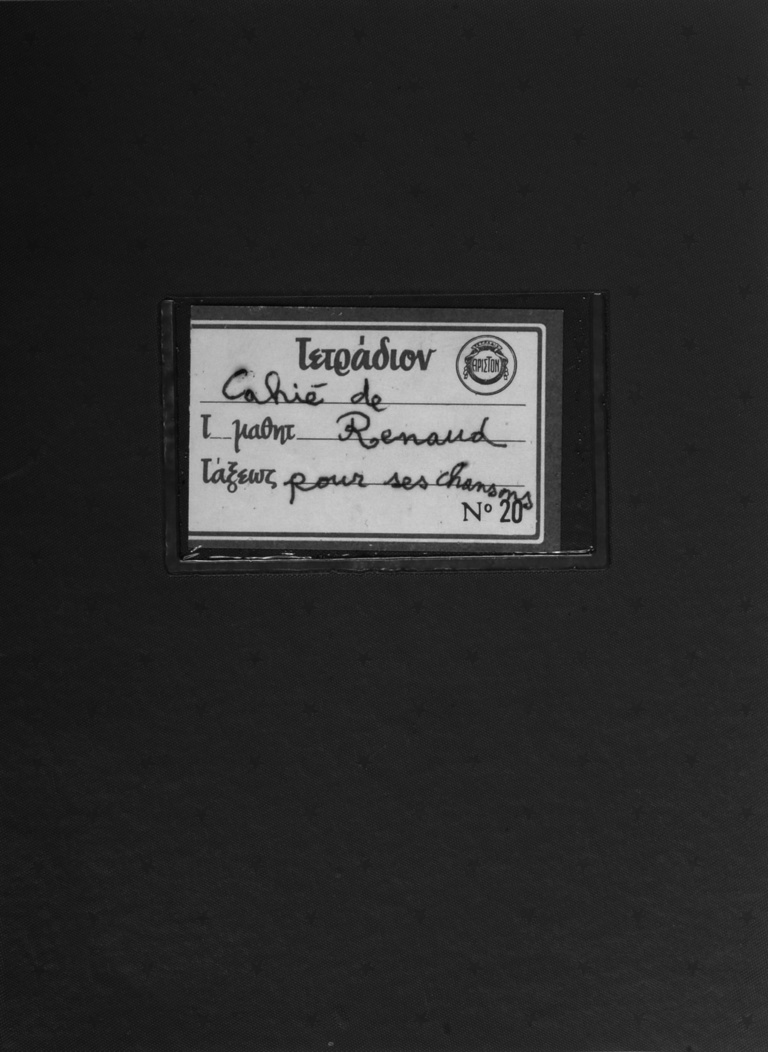 Τετράδιον
ΑΡΙΣΤΟΝ
Cahié de
Τ__μαθητ__ Renaud
Τάξεως pour ses chansons
Nº 20